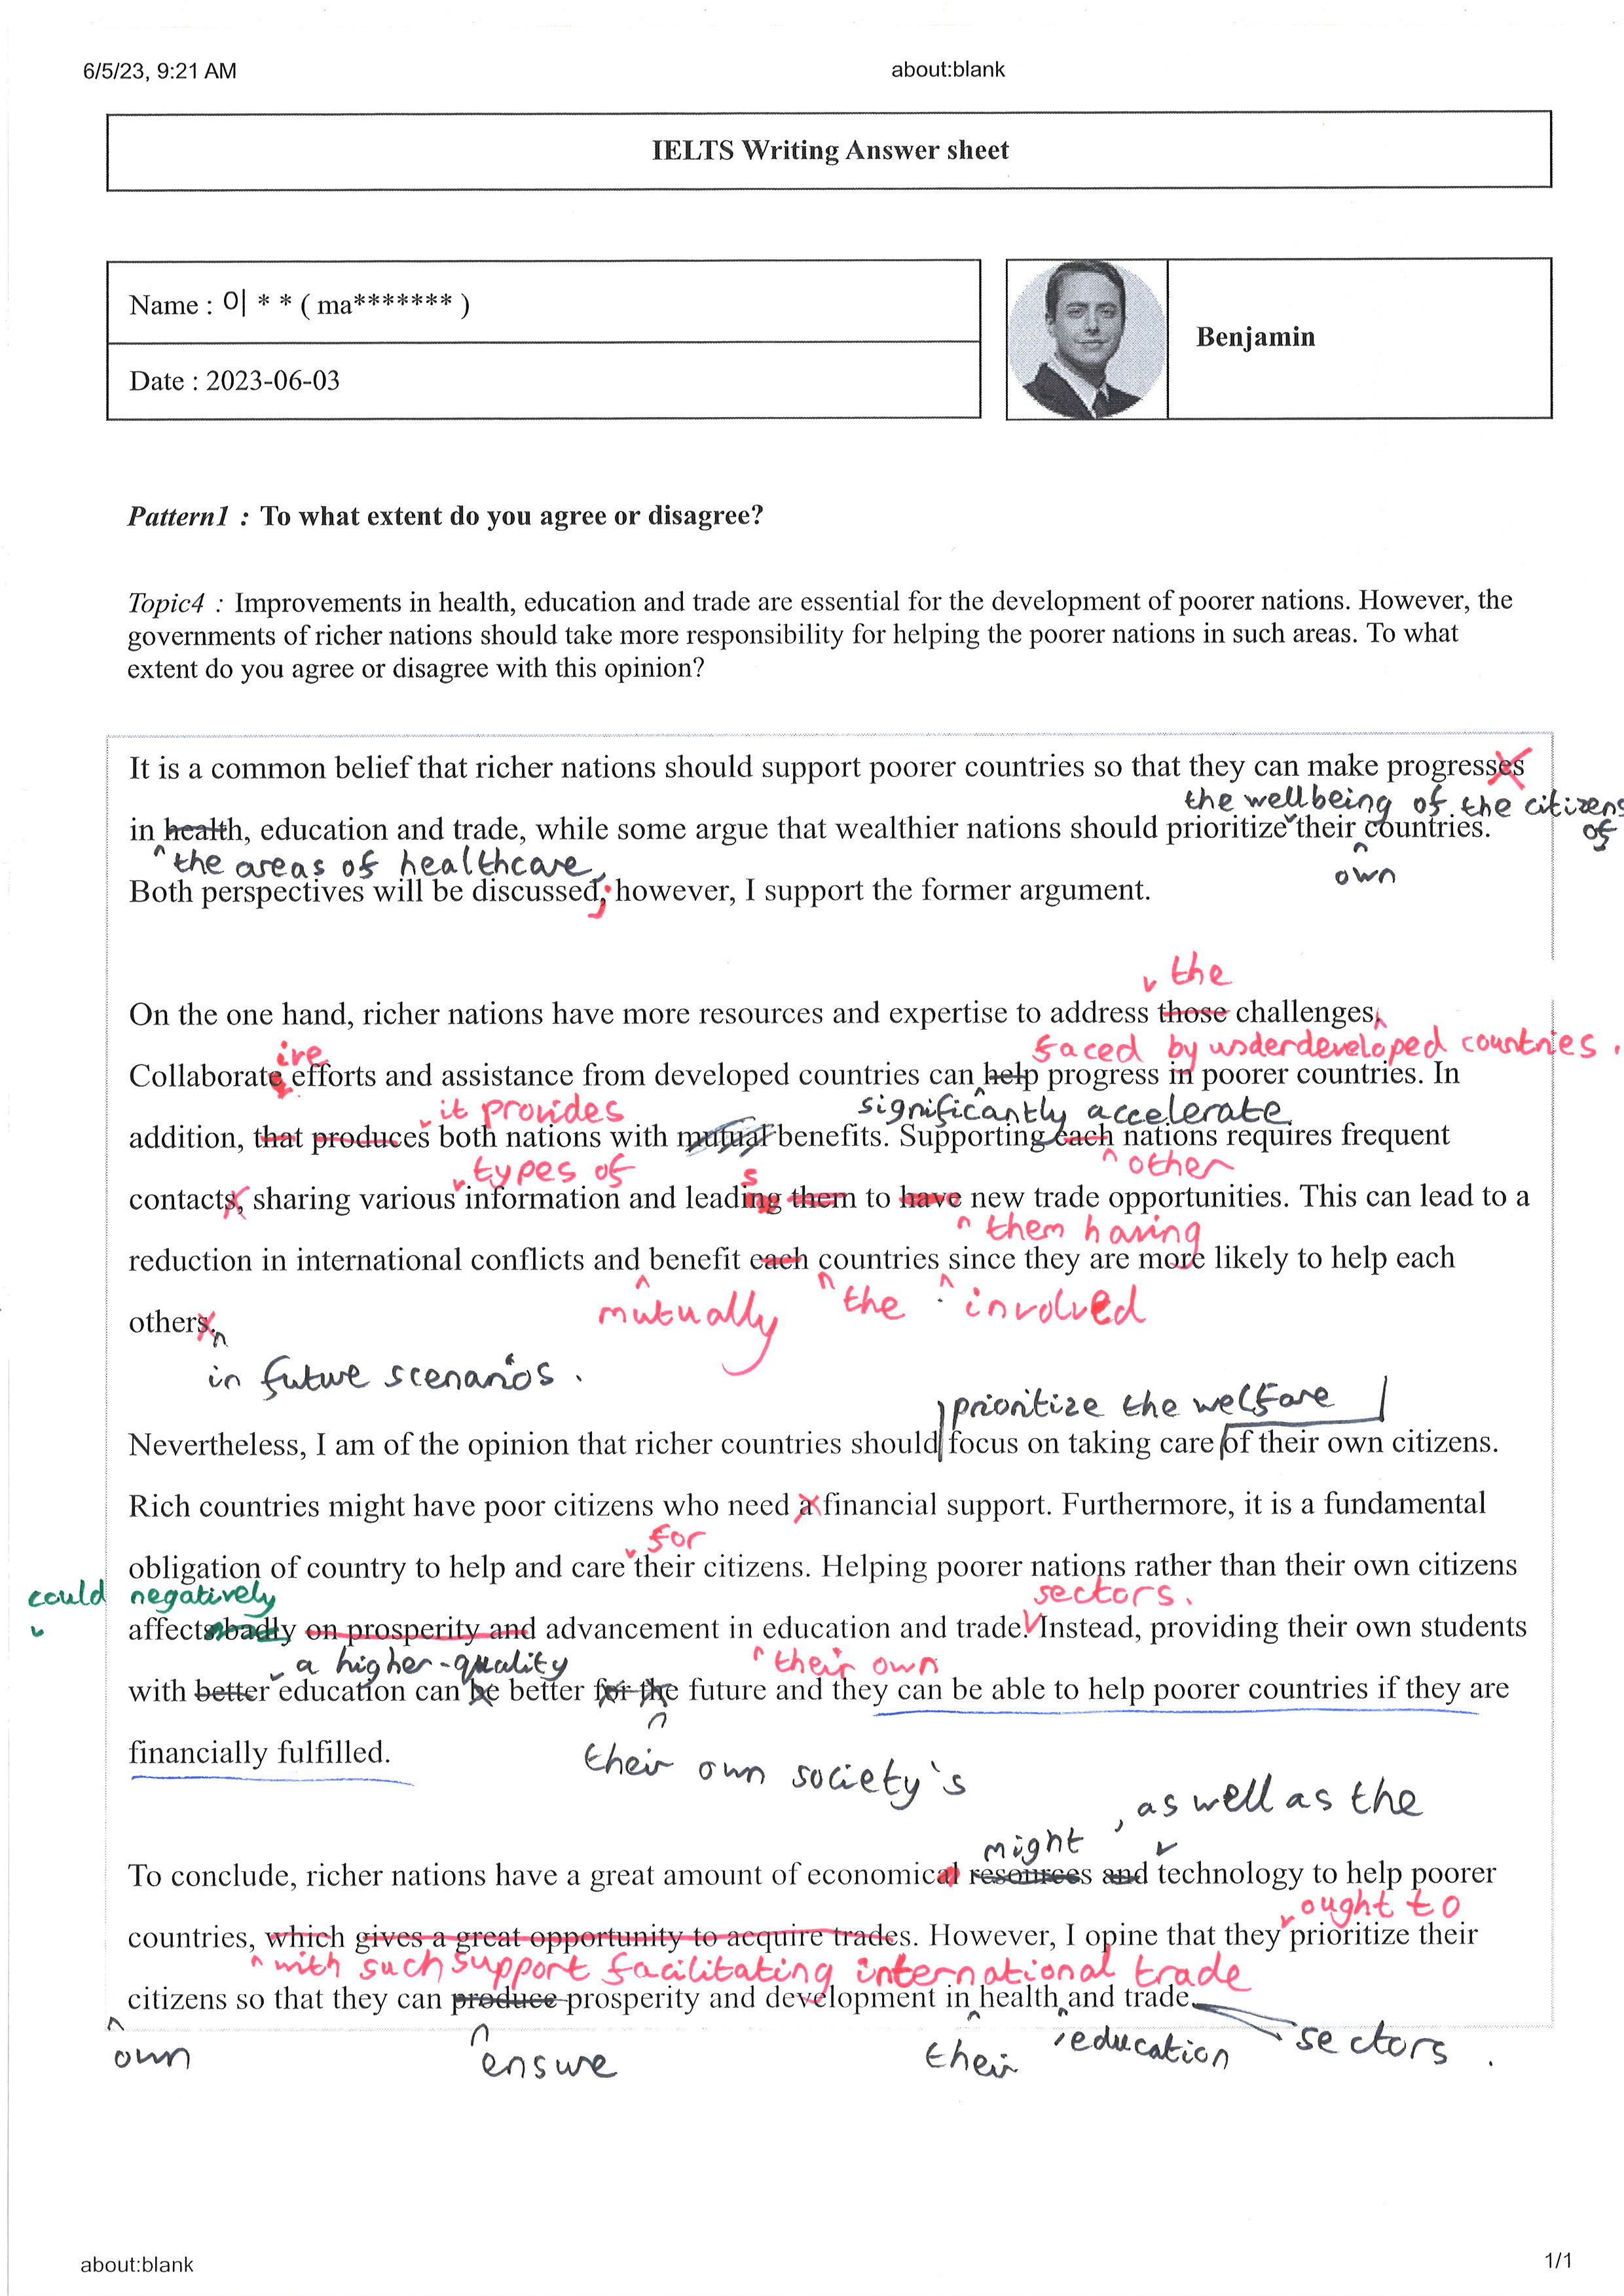 6/5/23, 9:21 AM about:blank
IELTS Writing Answer sheet
Name : 이 * * ( ma******* )
Benjamin
Date : 2023-06-03
Pattern1 : To what extent do you agree or disagree?
Topic4 : Improvements in health, education and trade are essential for the development of poorer nations. However, the
governments of richer nations should take more responsibility for helping the poorer nations in such areas. To what
extent do you agree or disagree with this opinion?
It is a common belief that richer nations should support poorer countries so that they can make progresses
the wellbeing of the citizens
in health, education and trade, while some argue that wealthier nations should prioritize their countries.
of
the areas of healthcare,
own
Both perspectives will be discussed; however, I support the former argument.
the
On the one hand, richer nations have more resources and expertise to address those challenges.
ive
faced by underdeveloped countries.
Collaborate efforts and assistance from developed countries can help progress in poorer countries. In
it provides
significantly accelerate
addition, that produces both nations with mutual benefits. Supporting each nations requires frequent
types of
s
other
contacts, sharing various information and leading them to have new trade opportunities. This can lead to a
them having
reduction in international conflicts and benefit each countries since they are more likely to help each
mutually the involved
others.
in future scenarios.
prioritize the welfare
Nevertheless, I am of the opinion that richer countries should focus on taking care of their own citizens.
Rich countries might have poor citizens who need a financial support. Furthermore, it is a fundamental
for
obligation of country to help and care their citizens. Helping poorer nations rather than their own citizens
could negatively
sectors.
affects badly on prosperity and advancement in education and trade. Instead, providing their own students
a higher-quality
their own
with better education can be better for the future and they can be able to help poorer countries if they are
financially fulfilled.
their own society's
, as well as the
might
To conclude, richer nations have a great amount of economical resources and technology to help poorer
ought to
countries, which gives a great opportunity to acquire trades. However, I opine that they prioritize their
with such support facilitating international trade
citizens so that they can produce prosperity and development in health and trade.
own ensure their , education sectors.
about:blank 1/1